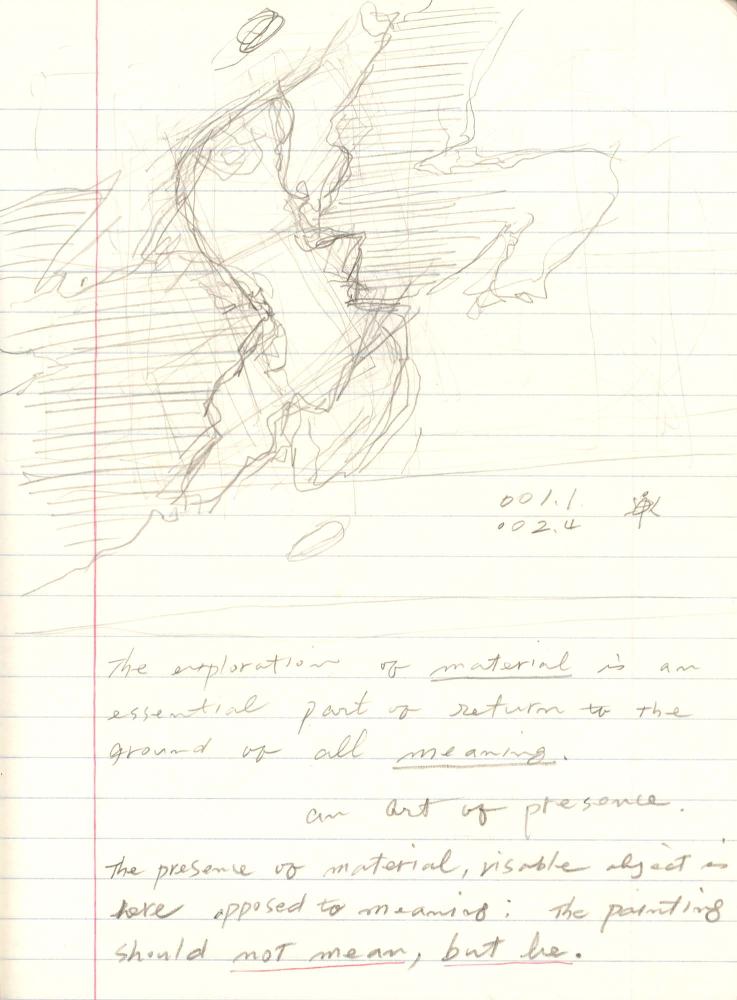 001.1.
.002.4
The exploration of material is an
essential part of return to the
ground of all meaning.
an art of presence.
The presence of material, visable object is
here opposed to meaning: The painting
should not mean, but be.